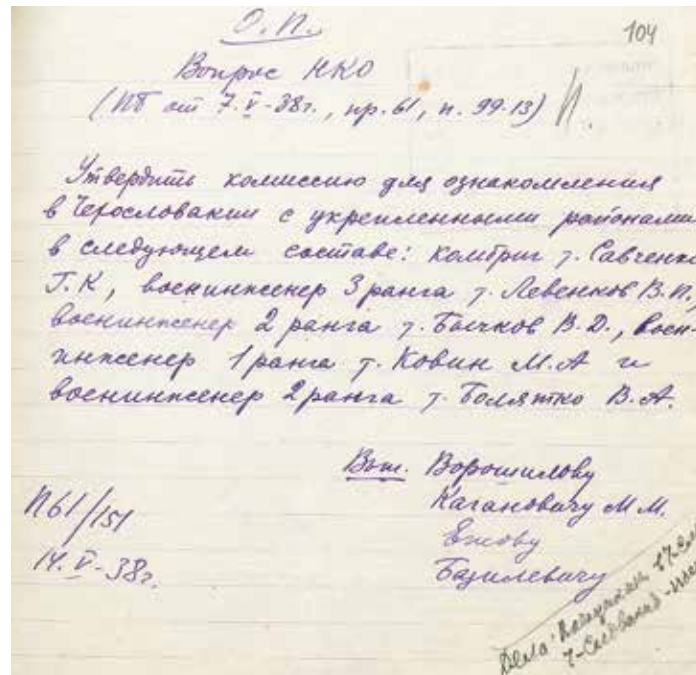 О.П.
104
Вопрос НКО
(ПБ от 7.V-38г., пр. 61, п. 99-13) П.
Утвердить комиссию для ознакомления
в Чехословакии с укрепленными районами
в следующем составе: комбриг т. Савченко
Г.К, военинженер 3 ранга т. Левенков В.П,
военинженер 2 ранга т. Бычков В.Д., воен-
инженер 1 ранга т. Ковин М.А и
военинженер 2 ранга т. Болятко В.А.
Вып. Ворошилову
Кагановичу М.М.
Ежову
Базилевичу
П61/151
14.V-38г.
Дела: